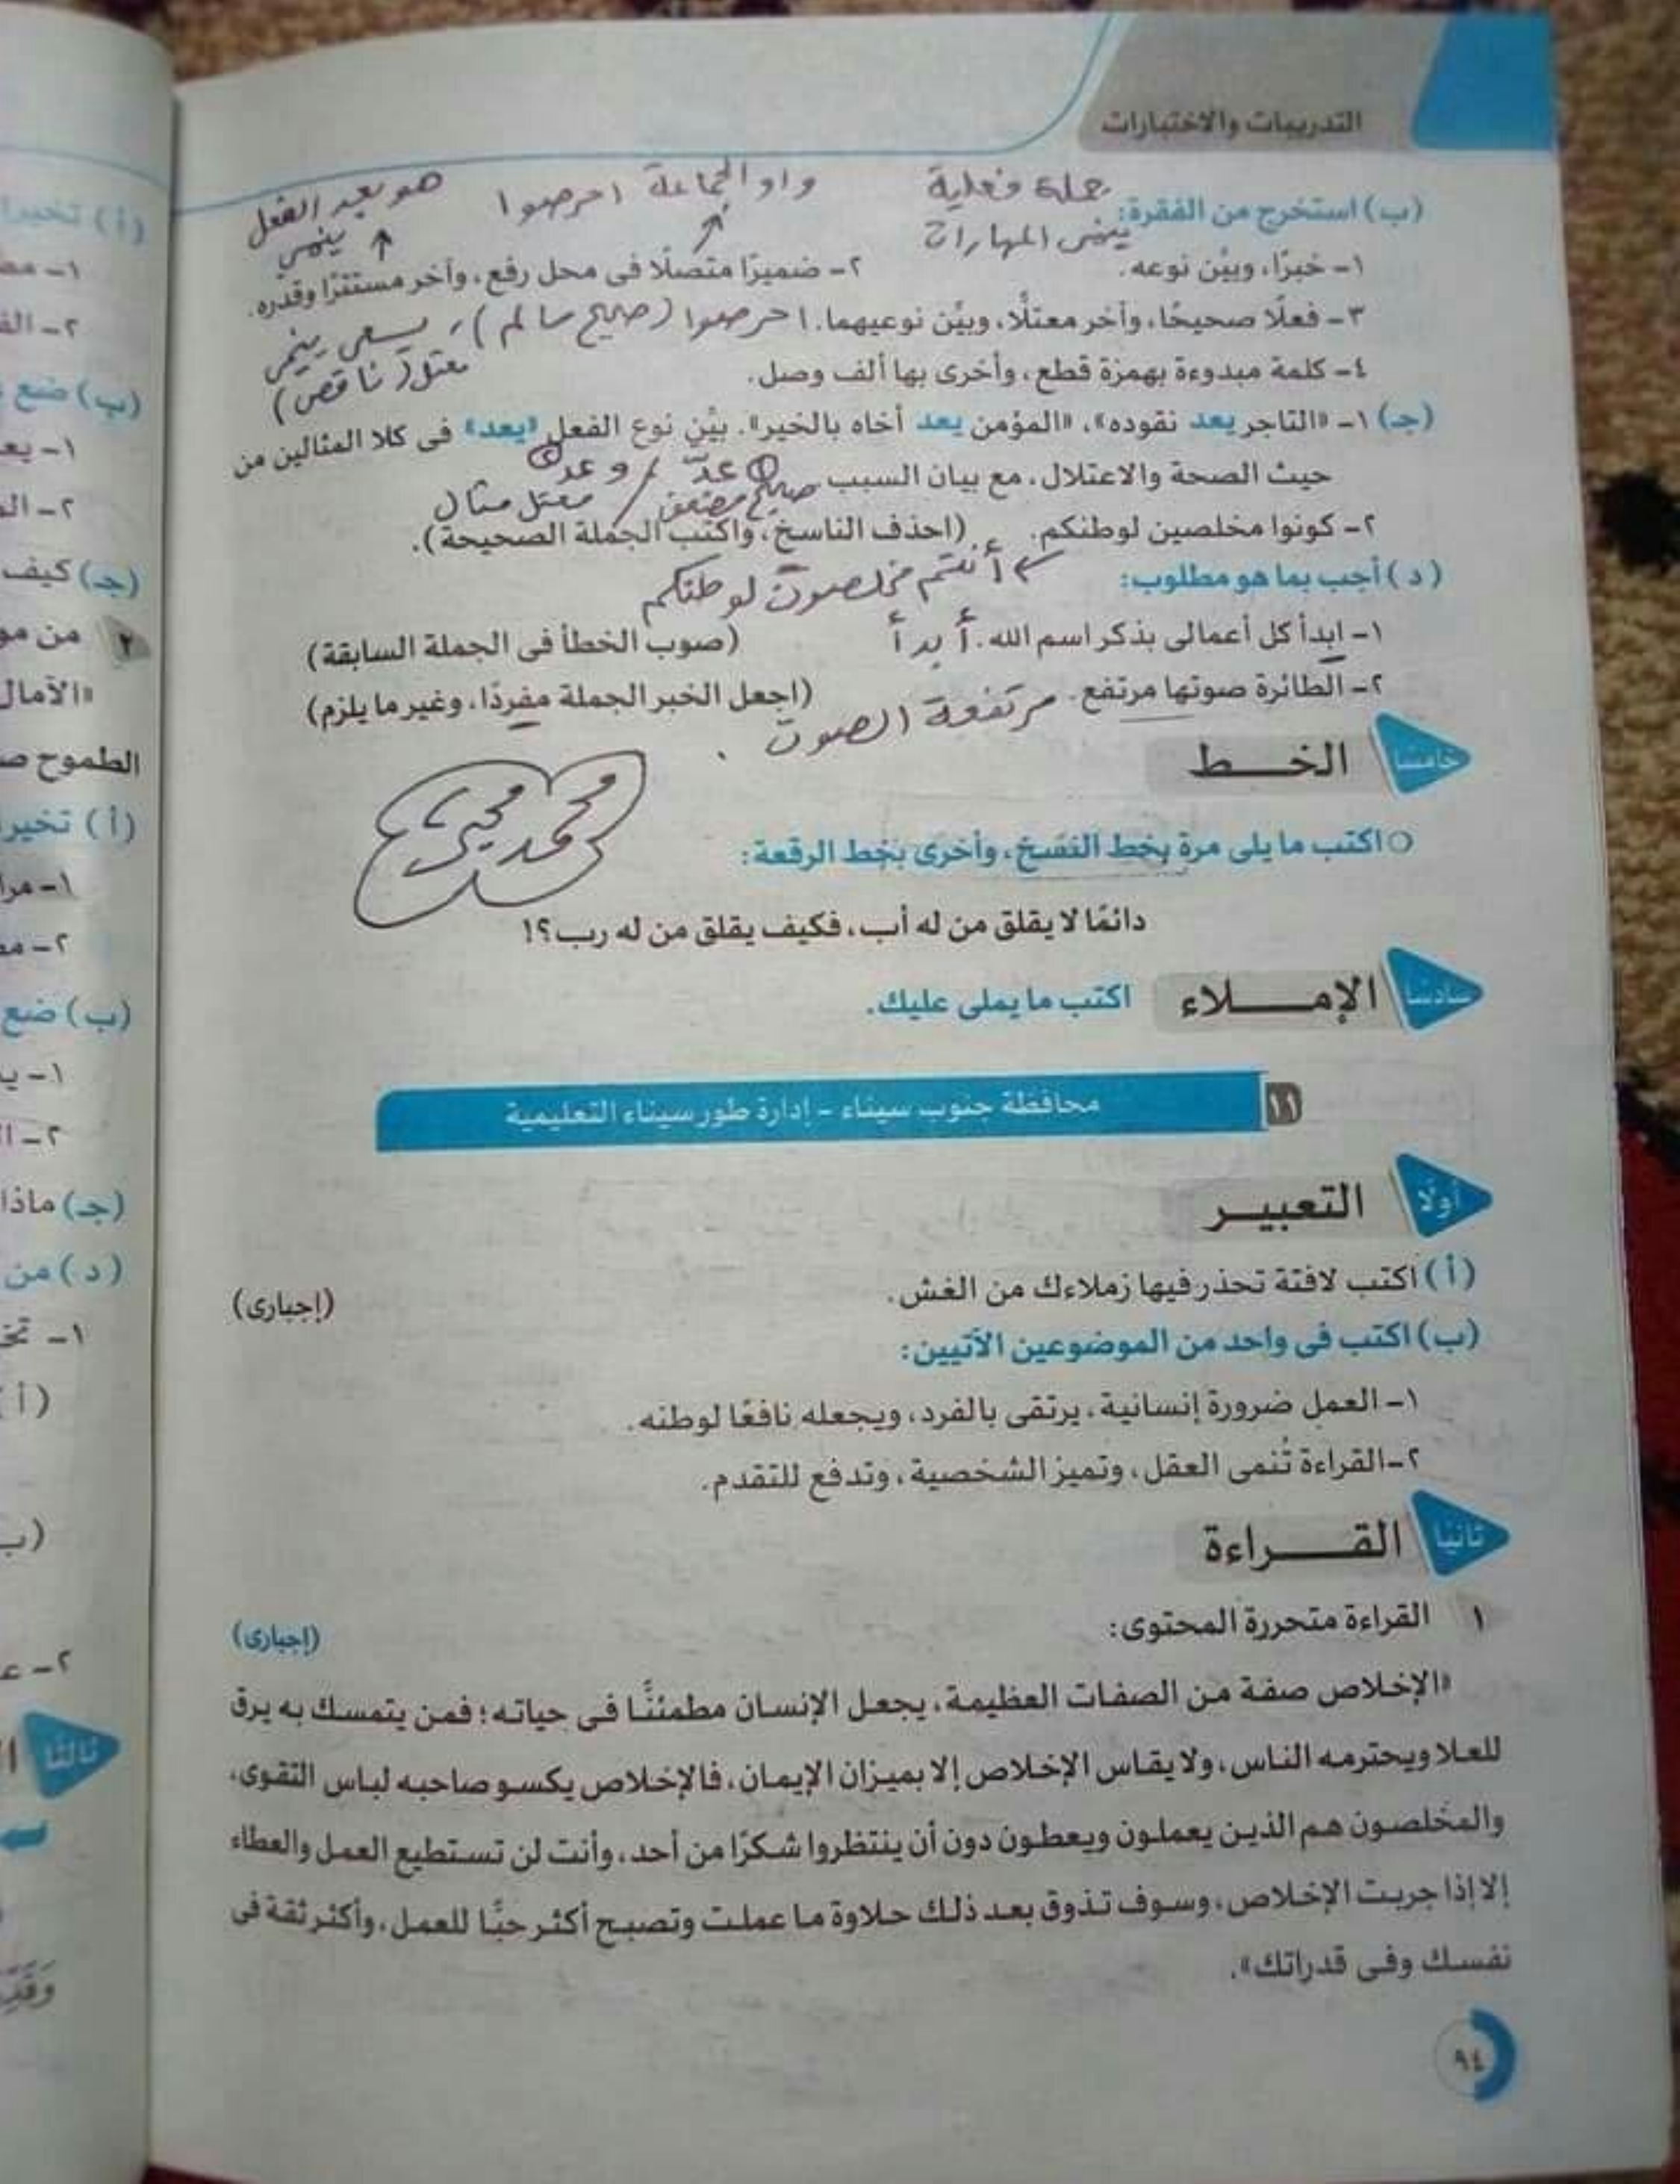 التدريبات والاختبارات
جملة فعلية
واو الجماعة احرصوا
هو بعد الفعل
ينمى
(ب) استخرج من الفقرة:
ينمى المهارات
١- خبرًا، وبيِّن نوعه.
٢- ضميرًا متصلًا فى محل رفع، وآخر مستترًا وقدِّره.
٣- فعلًا صحيحًا، وآخر معتلًّا، وبيِّن نوعيهما.
احرصوا (صحيح سالم)، يسعى ينمى
معتل (ناقص)
٤- كلمة مبدوءة بهمزة قطع، وأخرى بها ألف وصل.
(جـ) ١- «التاجر يعد نقوده»، «المؤمن يعد أخاه بالخير». بيِّن نوع الفعل «يعد» فى كلا المثالين من
حيث الصحة والاعتلال، مع بيان السبب
① عدّ / وعد ②
صحيح مضعف / معتل مثال
٢- كونوا مخلصين لوطنكم. (احذف الناسخ، واكتب الجملة الصحيحة).
أنتم مخلصون لوطنكم
(د) أجب بما هو مطلوب:
١- ابدأ كل أعمالى بذكر اسم الله. أبدأ (صوب الخطأ فى الجملة السابقة)
٢- الطائرة صوتها مرتفع. (اجعل الخبر الجملة مفردًا، وغير ما يلزم)
مرتفعة الصوت .
خامسًا الخــط
محمد
○ اكتب ما يلى مرة بخط النسخ، وأخرى بخط الرقعة:
دائمًا لا يقلق من له أب، فكيف يقلق من له رب؟!
سادسًا الإمــلاء اكتب ما يملى عليك.
١١ محافظة جنوب سيناء - إدارة طور سيناء التعليمية
أولًا التعبيــر
(أ) اكتب لافتة تحذر فيها زملاءك من الغش. (إجبارى)
(ب) اكتب فى واحد من الموضوعين الآتيين:
١- العمل ضرورة إنسانية، يرتقى بالفرد، ويجعله نافعًا لوطنه.
٢- القراءة تُنمى العقل، وتميز الشخصية، وتدفع للتقدم.
ثانيًا القــراءة
١ القراءة متحررة المحتوى: (إجبارى)
«الإخلاص صفة من الصفات العظيمة، يجعل الإنسان مطمئنًّا فى حياته؛ فمن يتمسك به يرق
للعلا ويحترمه الناس، ولا يقاس الإخلاص إلا بميزان الإيمان، فالإخلاص يكسو صاحبه لباس التقوى،
والمخلصون هم الذين يعملون ويعطون دون أن ينتظروا شكرًا من أحد، وأنت لن تستطيع العمل والعطاء
إلا إذا جربت الإخلاص، وسوف تذوق بعد ذلك حلاوة ما عملت وتصبح أكثر حبًّا للعمل، وأكثر ثقة فى
نفسك وفى قدراتك».
٩٤
(أ) تخير
(ب) ضع
١- يعد
(جـ) كيف
٢ من مو
«الآمال
الطموح
(أ) تخير
(ب) ضع
(جـ) ماذا
(د) من
(أ)
(ب
ثالثًا